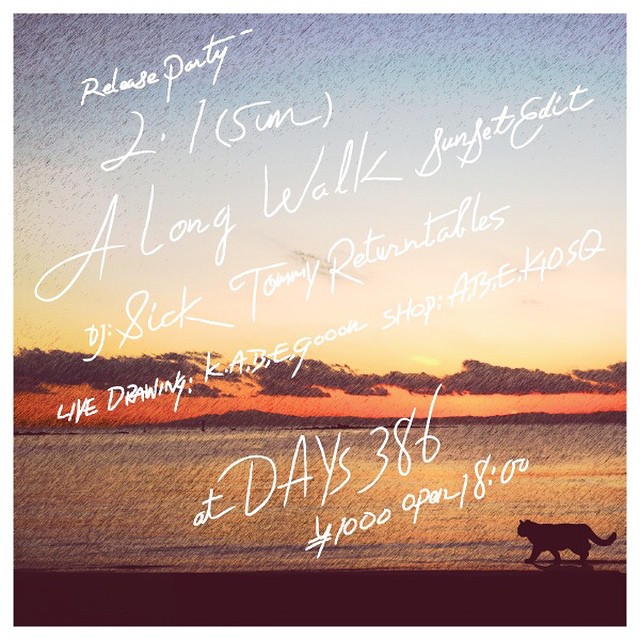 Release Party -
2.1(sun)
A Long Walk Sunset Edit
DJ: Sick Tommy Returntables
LIVE DRAWING: K.A.B.E.Goook SHOP: A.B.E.KIOSQ
at DAYs 386
¥1000 open 18:00